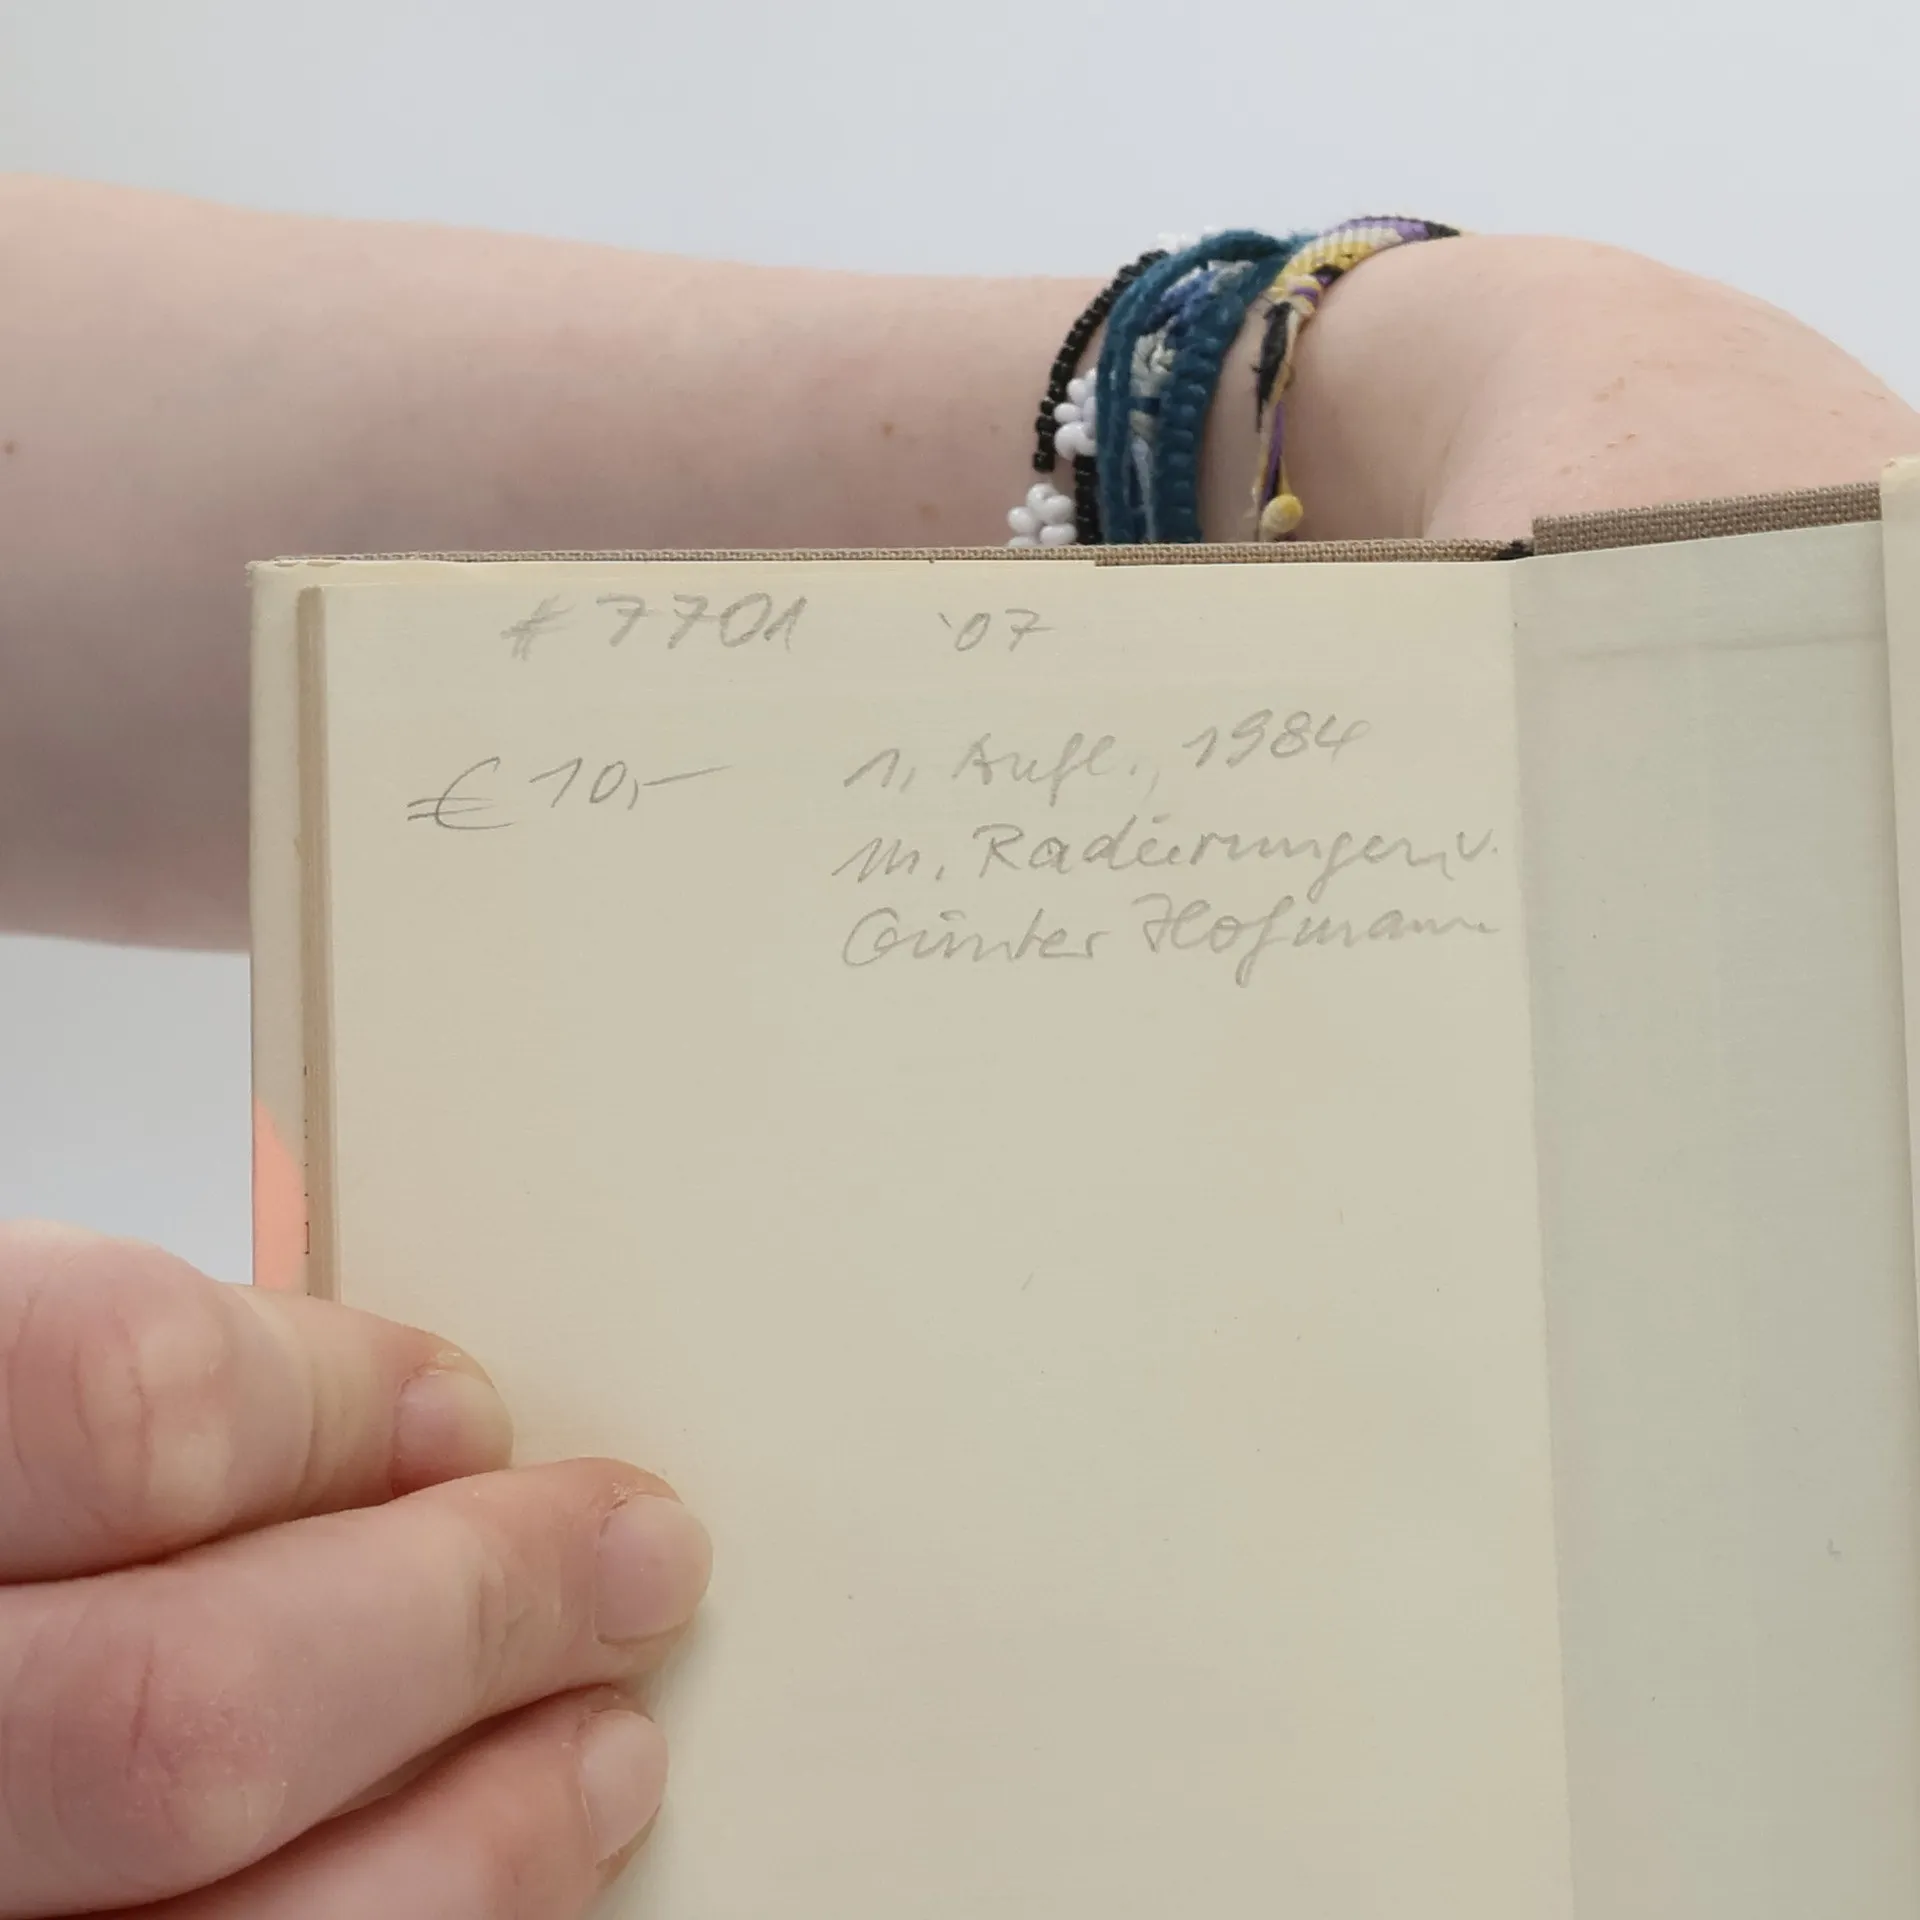 # 7701 '07
€ 10,- 1. Aufl., 1984
m. Radierungen v.
Günter Hofmann